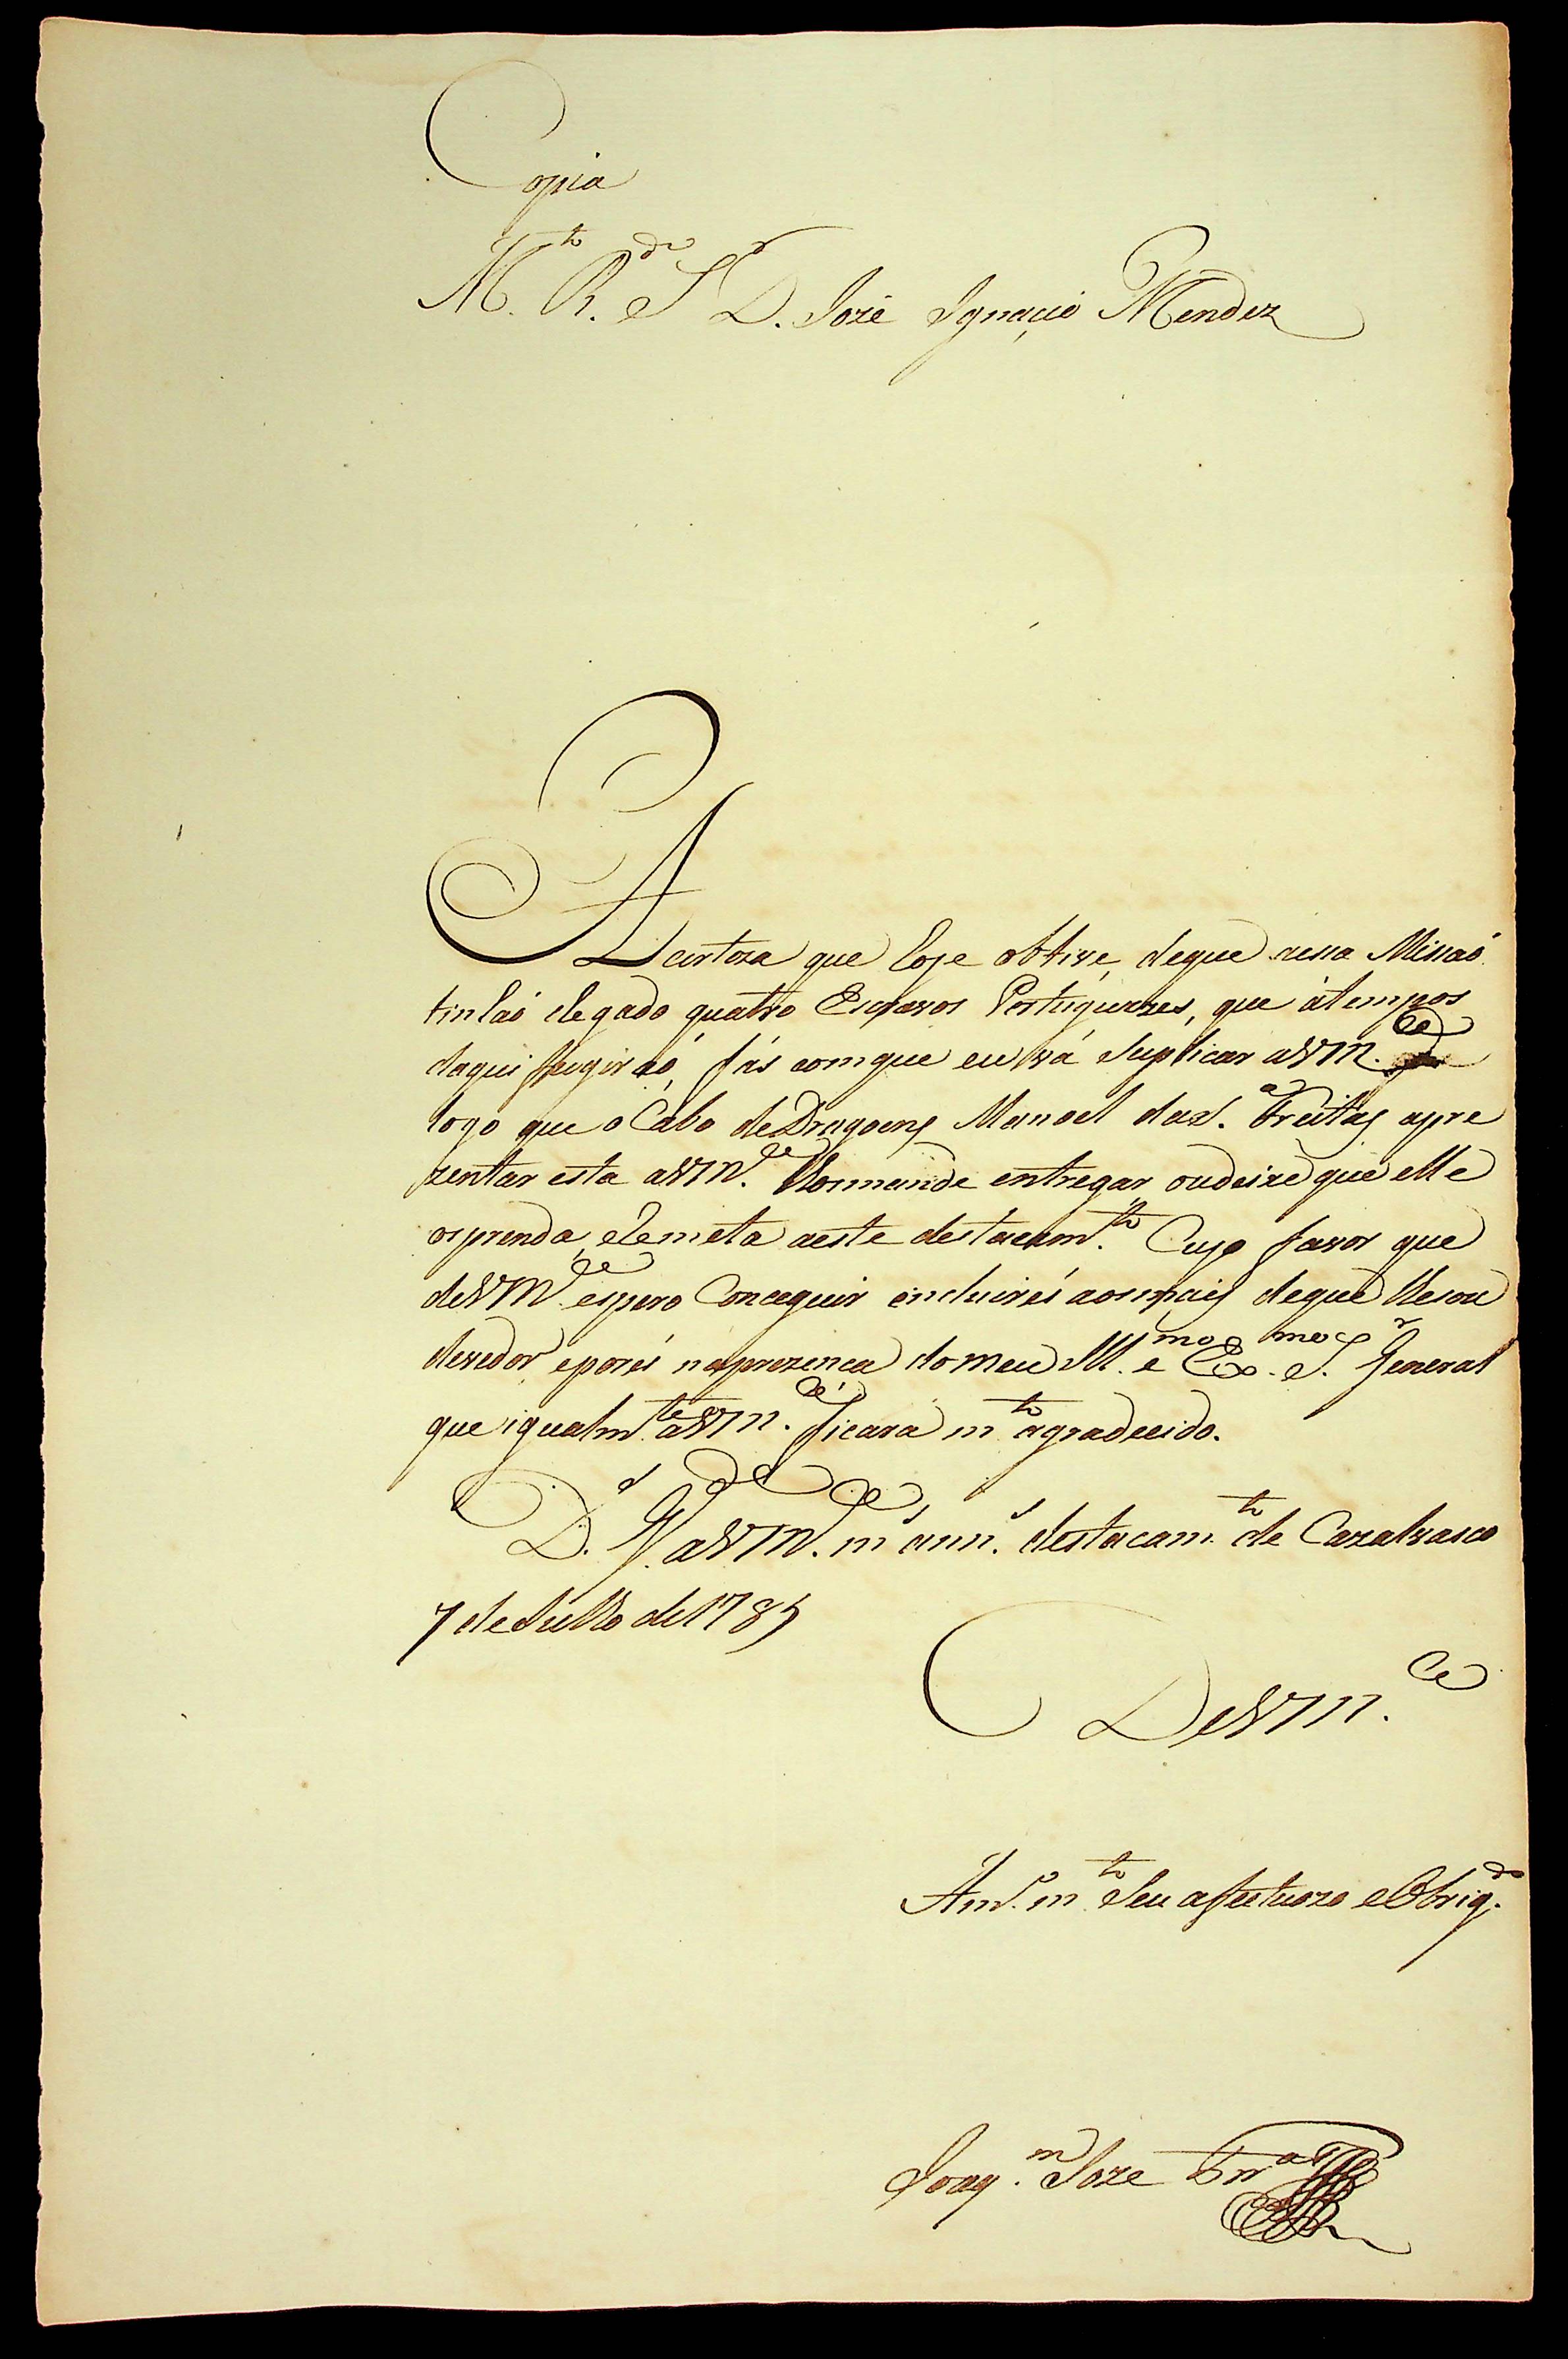 Copia
M.to R.do Sr D. Joze Ignacio Mendez
A certeza que hoje obtive, deque nessa Missaó
tinhaó chegado quatro Escravos Portuguezes, que átempos
daqui fugiraó, fás comque eu vá Suplicar aVM.ce
logo que o Cabo deDragoens Manoel daS.a Freitas apre
zentar esta aVM.ce lhosmande entregar, oudeixe que elle
osprenda, eRemeta aeste destacam.to Cujo favor que
deVM.ce espero Conceguir incluirei aosmais deque lhesou
devedor, eporei naprezenca domeu Ill.mo e Ex.mo Sr. General
que igualm.te aVM.ce ficara m.to agradecido.
D.s G.de aVM.ce m.s ann.s destacam.to de Cazalvasco
7 deJulho de1785
DeVM.ce
Am.o m.to Seu afectuozo eObrig.do
Joaq.m Joze Frr.a